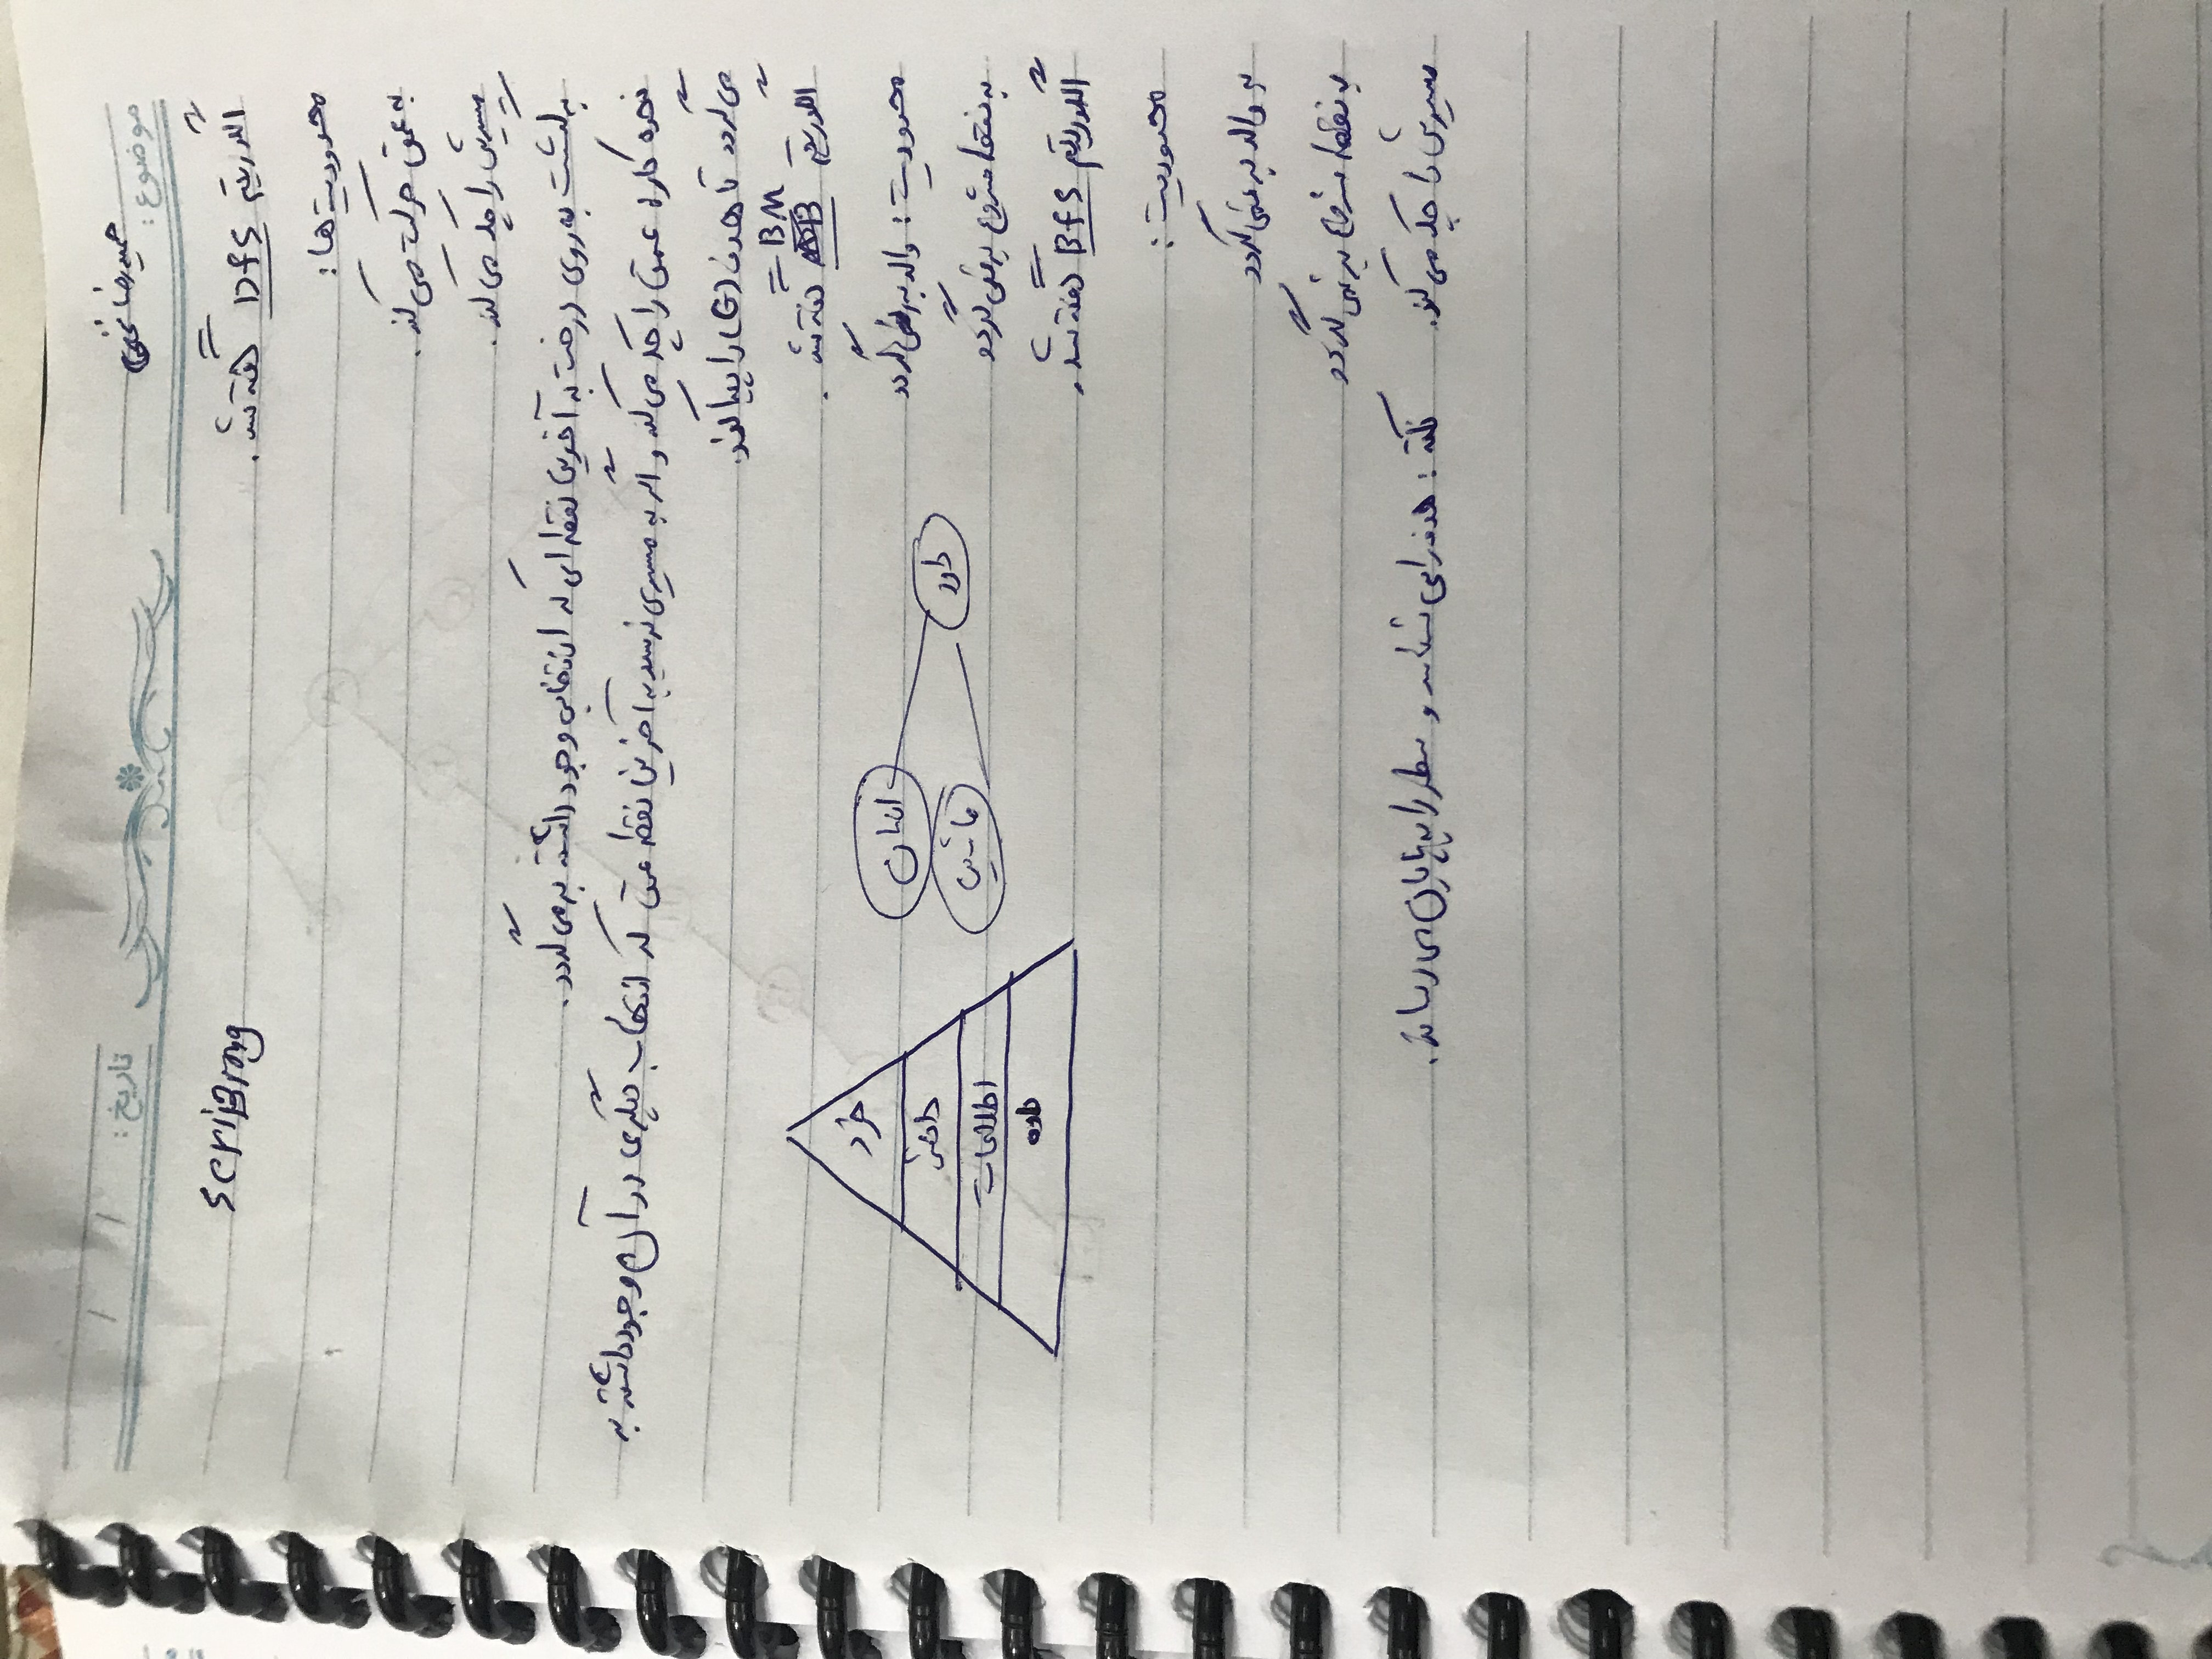 موضوع : حمیدرضا
تاریخ : / /
الگوریتم Dfs گفته شد .
ScriBrong
محدودیت ها :
به عمق حرکت می کند .
مسیرش را چک می کند .
برگشت به روی درخت به آخرین نقطه ای که انتخابی وجود داشته بر می گردد .
نحوه کار : عمق را چک می کند و اگر به مسیری نرسید به آخرین نقطه عمق که انتخاب دیگری در آن وجود داشته بر
می گردد تا هدف (G) را پیدا کند.
الگوریتم BM گفته شد .
محدودیت : والد بر نمی گردد
به نقطه شروع بر نمی گردد
خرد
دانش
اطلاعات
داده
انسان
ماشین
داور
الگوریتم Bfs گفته شد .
محدودیت :
به والد بر نمی گردد
به نقطه شروع بر نمی گردد
مسیرش را چک می کند. نکته : هدف را می شناسد و سطر را به پایان می رساند .